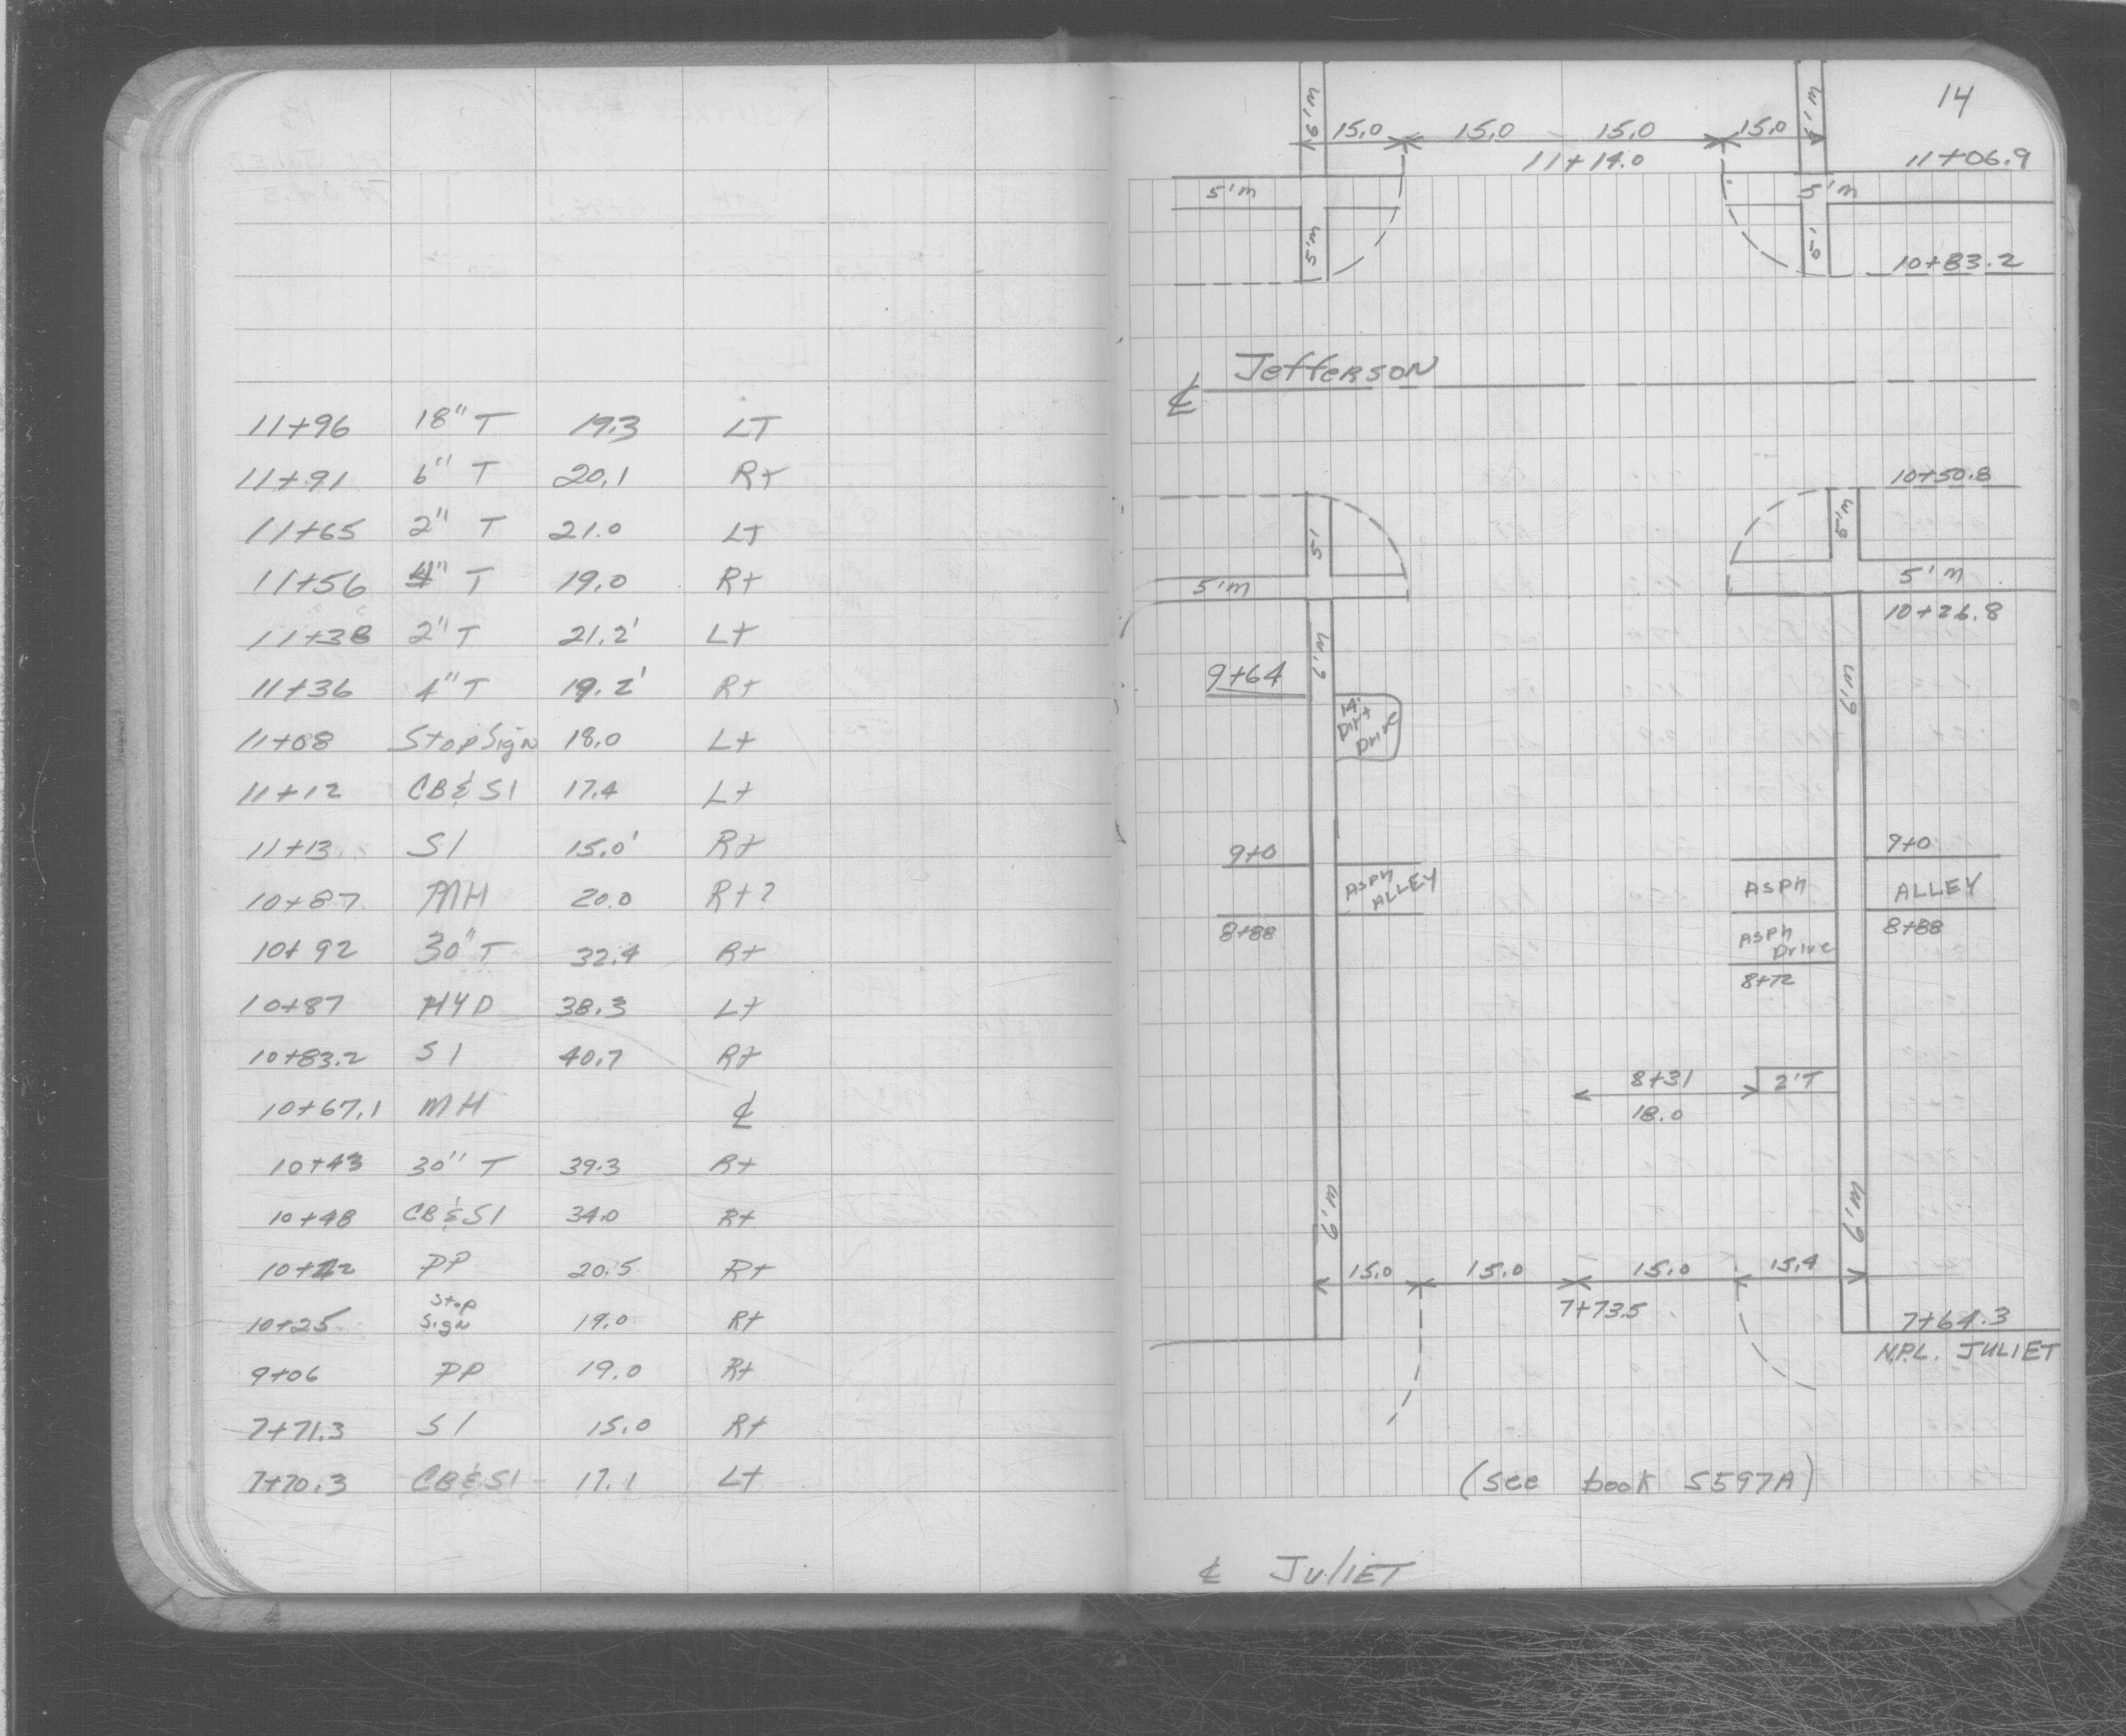 11+96 18" T 19.3 LT
11+91 6" T 20.1 Rt
11+65 2" T 21.0 Lt
11+56 4" T 19.0 Rt
11+38 2" T 21.2' Lt
11+36 4" T 19.2' Rt
11+08 Stop Sign 18.0 Lt
11+12 CB & SI 17.4 Lt
11+13 SI 15.0' Rt
10+87 MH 20.0 Rt?
10+92 30" T 32.4 Rt
10+87 HYD 38.3 Lt
10+83.2 SI 40.7 Rt
10+67.1 MH ℄
10+43 30" T 39.3 Rt
10+48 CB & SI 34.0 Rt
PP 20.5 Rt
10+25 Stop Sign 19.0 Rt
9+06 PP 19.0 Rt
7+71.3 SI 15.0 Rt
7+70.3 CB & SI 17.1 Lt
14
6'M 15.0 15.0 15.0 15.0
11+14.0 11+06.9
5'M 5'M
5'M
10+83.2
℄ Jefferson
10+50.8
5' 5'M
5'M 5'M
10+26.8
6'M 6'M
9+64
14' Dirt Drive
9+0 9+0
Asph ALLEY Asph ALLEY
8+88 8+88
Asph Drive
8+72
8+31 2'T
18.0
6'M 6'M
15.0 15.0 15.0 15.4
7+73.5 7+64.3
N.P.L. JULIET
(see book 5597A)
℄ JULIET